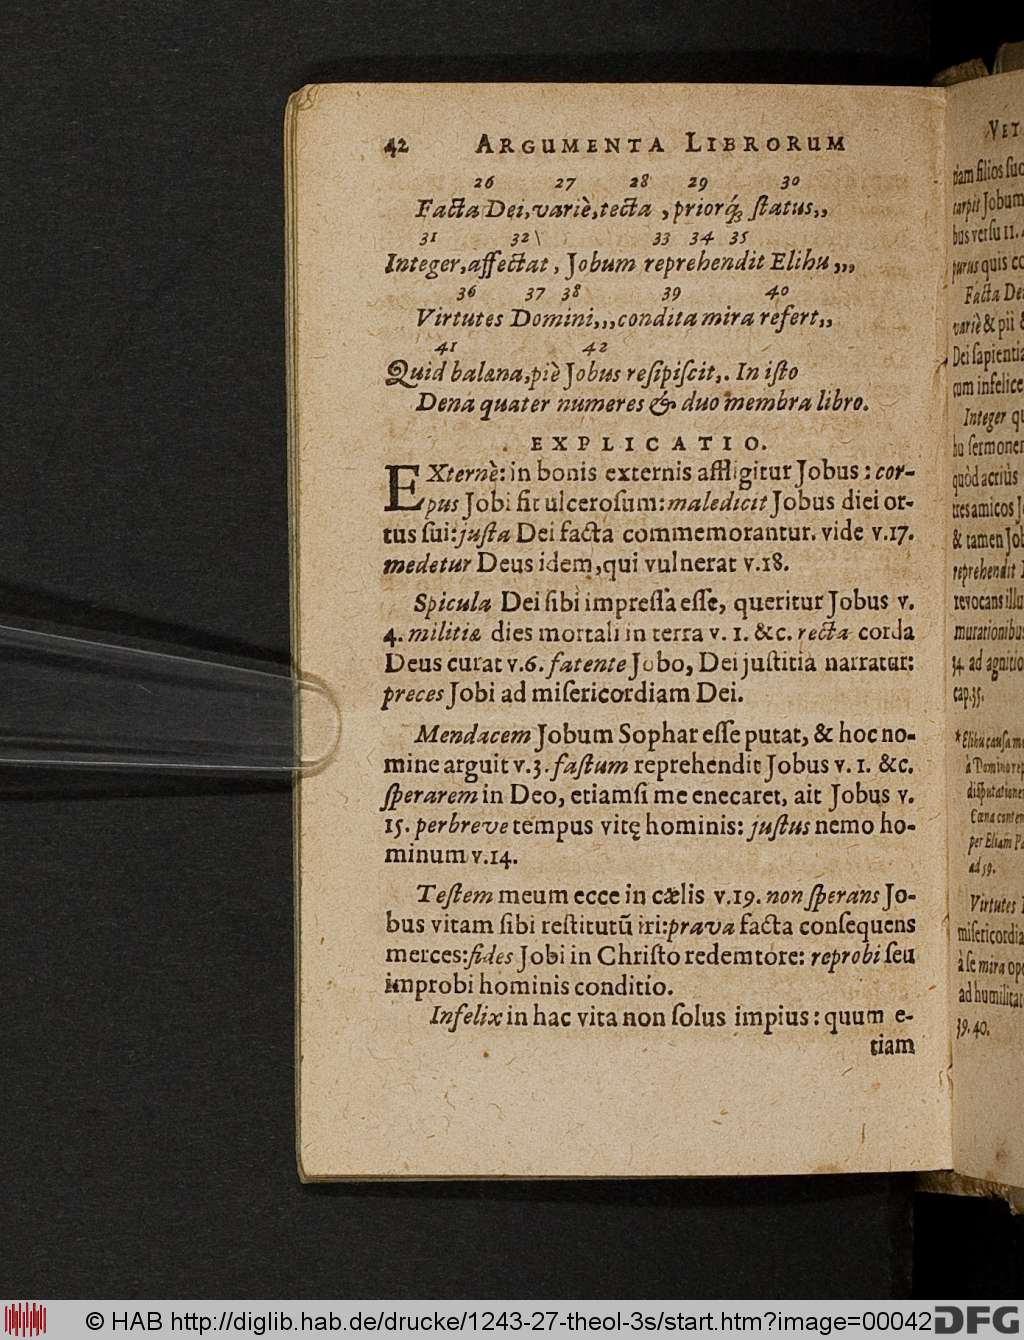 42 ARGUMENTA LIBRORUM
26 27 28 29 30
Facta Dei, variè, tecta , priorq́; ſtatus,,
31 32 33 34 35
Integer, affectat , Jobum reprehendit Elihu ,,,
36 37 38 39 40
Virtutes Domini,,, condita mira refert,,
41 42
Quid balæna, piè Jobus reſipiſcit,. In iſto
Dena quater numeres & duo membra libro.
EXPLICATIO.
EXternè: in bonis externis affligitur Jobus : cor-
pus Jobi fit ulceroſum: maledicit Jobus diei or-
tus ſui: juſta Dei facta commemorantur. vide v.17.
medetur Deus idem, qui vulnerat v.18.
Spicula Dei ſibi impreſſa eſſe, queritur Jobus v.
4. militiæ dies mortali in terra v. 1. &c. recta corda
Deus curat v.6. fatente Jobo, Dei juſtitia narratur:
preces Jobi ad miſericordiam Dei.
Mendacem Jobum Sophar eſſe putat, & hoc no-
mine arguit v.3. faſtum reprehendit Jobus v. 1. &c.
ſperarem in Deo, etiamſi me enecaret, ait Jobus v.
15. perbreve tempus vitę hominis: juſtus nemo ho-
minum v.14.
Teſtem meum ecce in cælis v.19. non ſperans Jo-
bus vitam ſibi reſtitutū iri: prava facta conſequens
merces: fides Jobi in Chriſto redemtore: reprobi ſeu
improbi hominis conditio.
Infelix in hac vita non ſolus impius : quum e-
tiam
VET
tiam filios ſuc
carpit Jobum
bus verſu 11.
purus quis co
Facta Dei
variè & pii &
Dei ſapientia
cum infelice
Integer qu
hu ſermonem
quòd acriùs
tres amicos J
& tamen Job
reprehendit
revocans illu
murationibus
34. ad agnitio
cap.35.
*Elihu cauſa me
à Domino rep
diſputationem
Cœna conten
per Eliam Pa
ad 39.
Virtutes
miſericordia
à ſe mira ope
ad humilitat
39. 40.
© HAB http://diglib.hab.de/drucke/1243-27-theol-3s/start.htm?image=00042 DFG